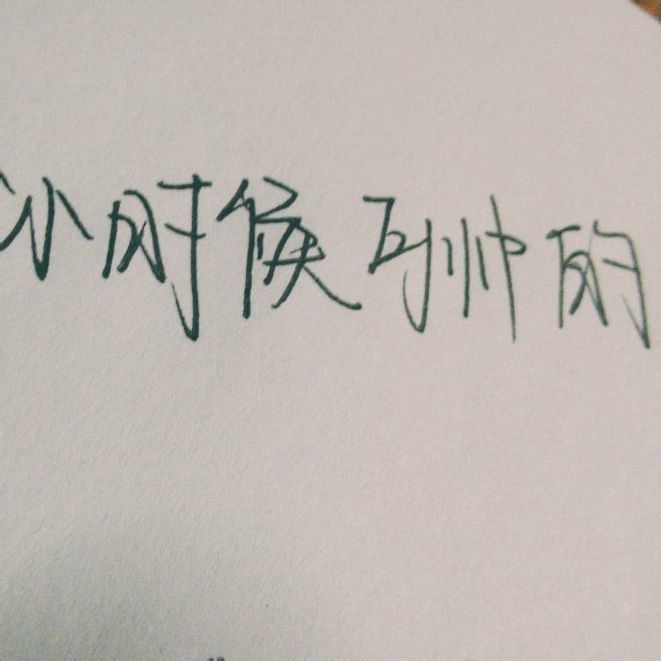 小时候可帅的